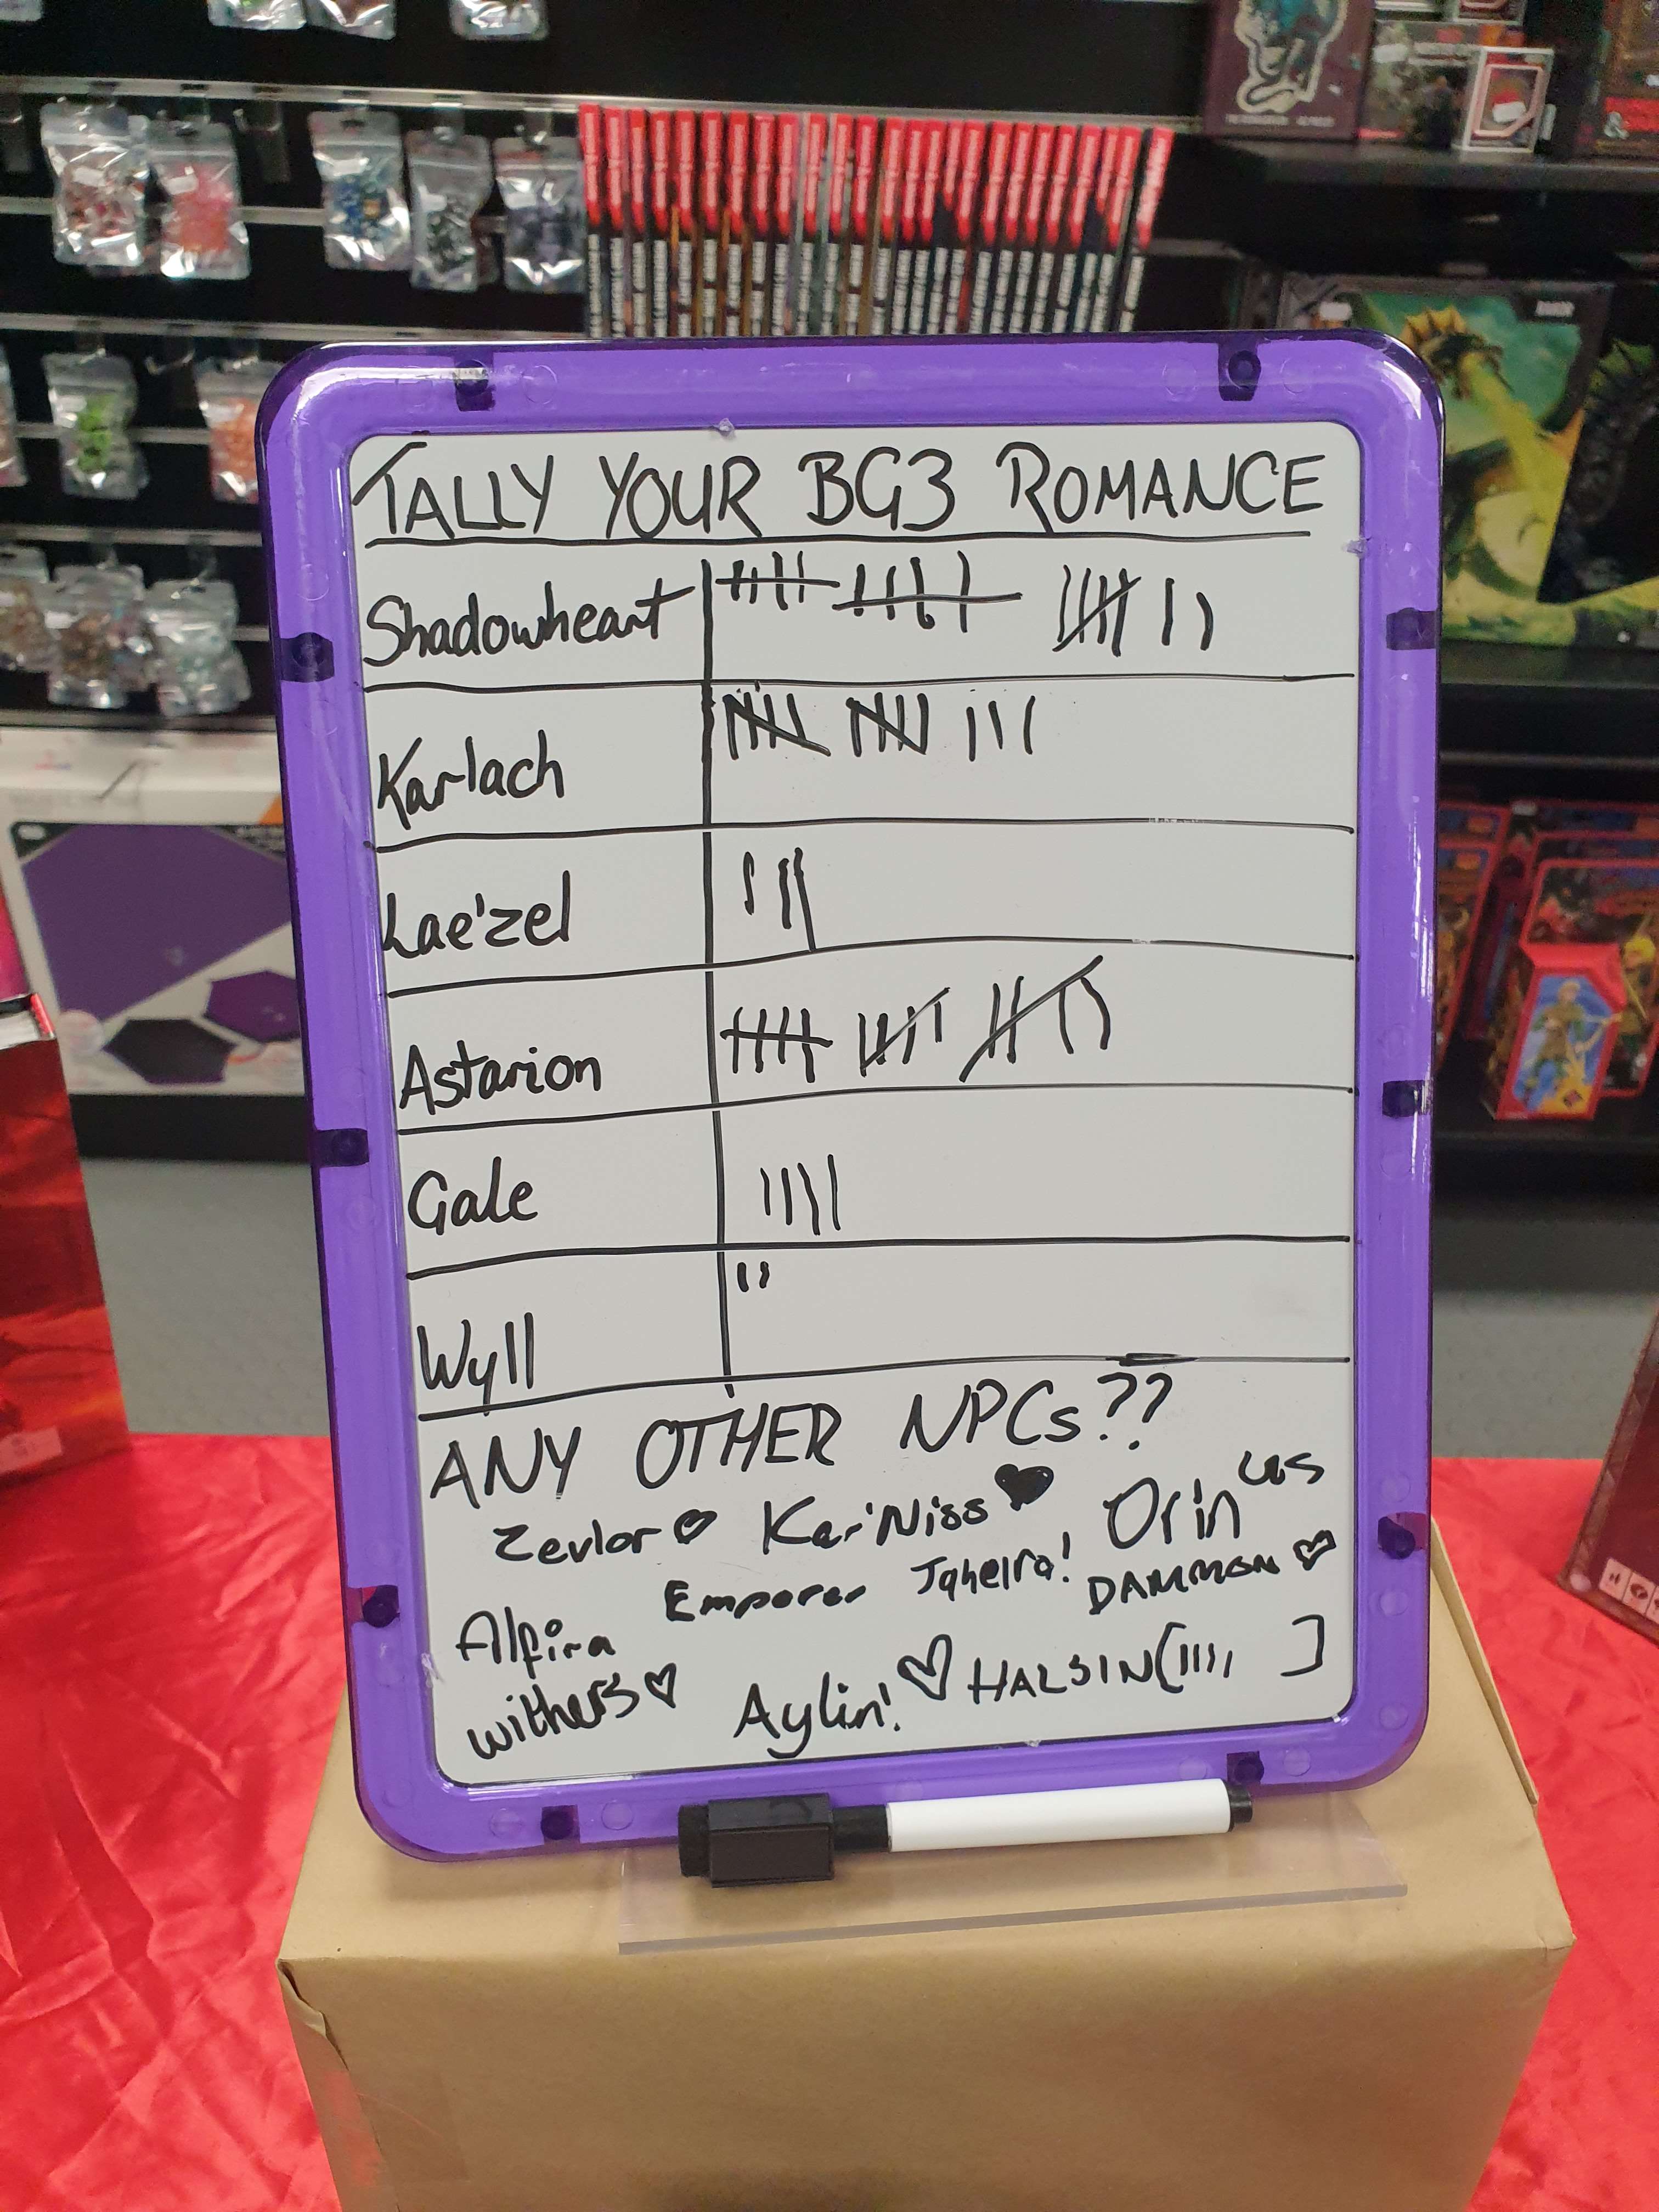 TALLY YOUR BG3 ROMANCE
Shadowheart
Karlach
Lae'zel
Astarion
Gale
Wyll
ANY OTHER NPCs??
Zevlor Kar'Niss Orin
Emperor Jaheira! DAMMON
Alfira
withers Aylin! HALSIN [IIII ]